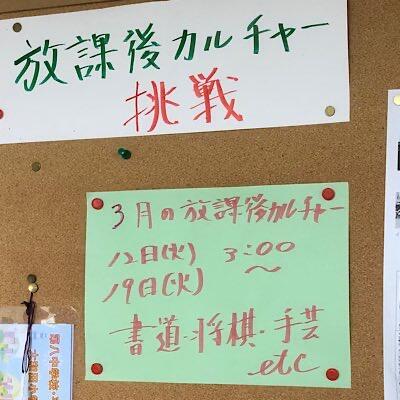 放課後カルチャー
挑戦
3月の放課後カルチャー
12日(火) 3:00
19日(火) 〜
書道・将棋・手芸
etc